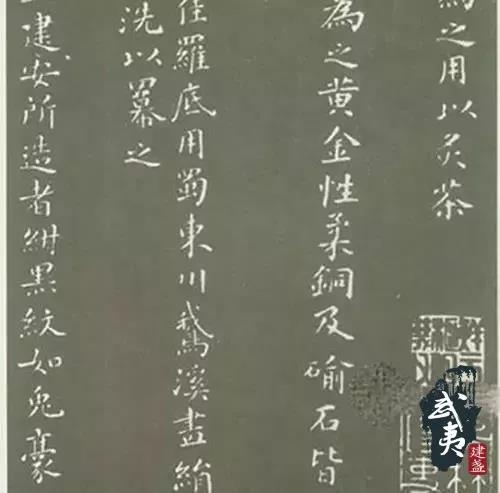 為之用以炙茶
為之黄金性柔銅及石皆
佳羅底用蜀東川鵝溪畫絹
洗以羃之
建安所造者紺黑紋如兔豪
武夷
建盏